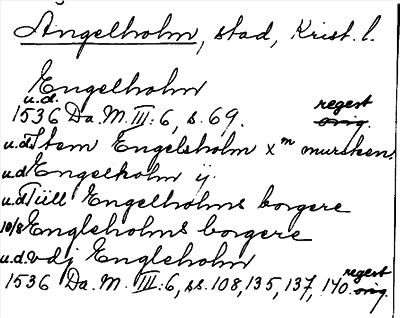 Ängelholm, stad, Krist. l.
Engelholm
u.d.
1536 Da. M. III: 6, s. 69. regest orig.
u.d. Item Engelsholm xm mursteen
u.d. Engelholm ij.
u.d. Tiill Engelholms borgere
10/8 Engleholms borgere
u.d. vdj Engleholm
1536 Da. M. III: 6, ss. 108, 135, 137, 140. regest orig.